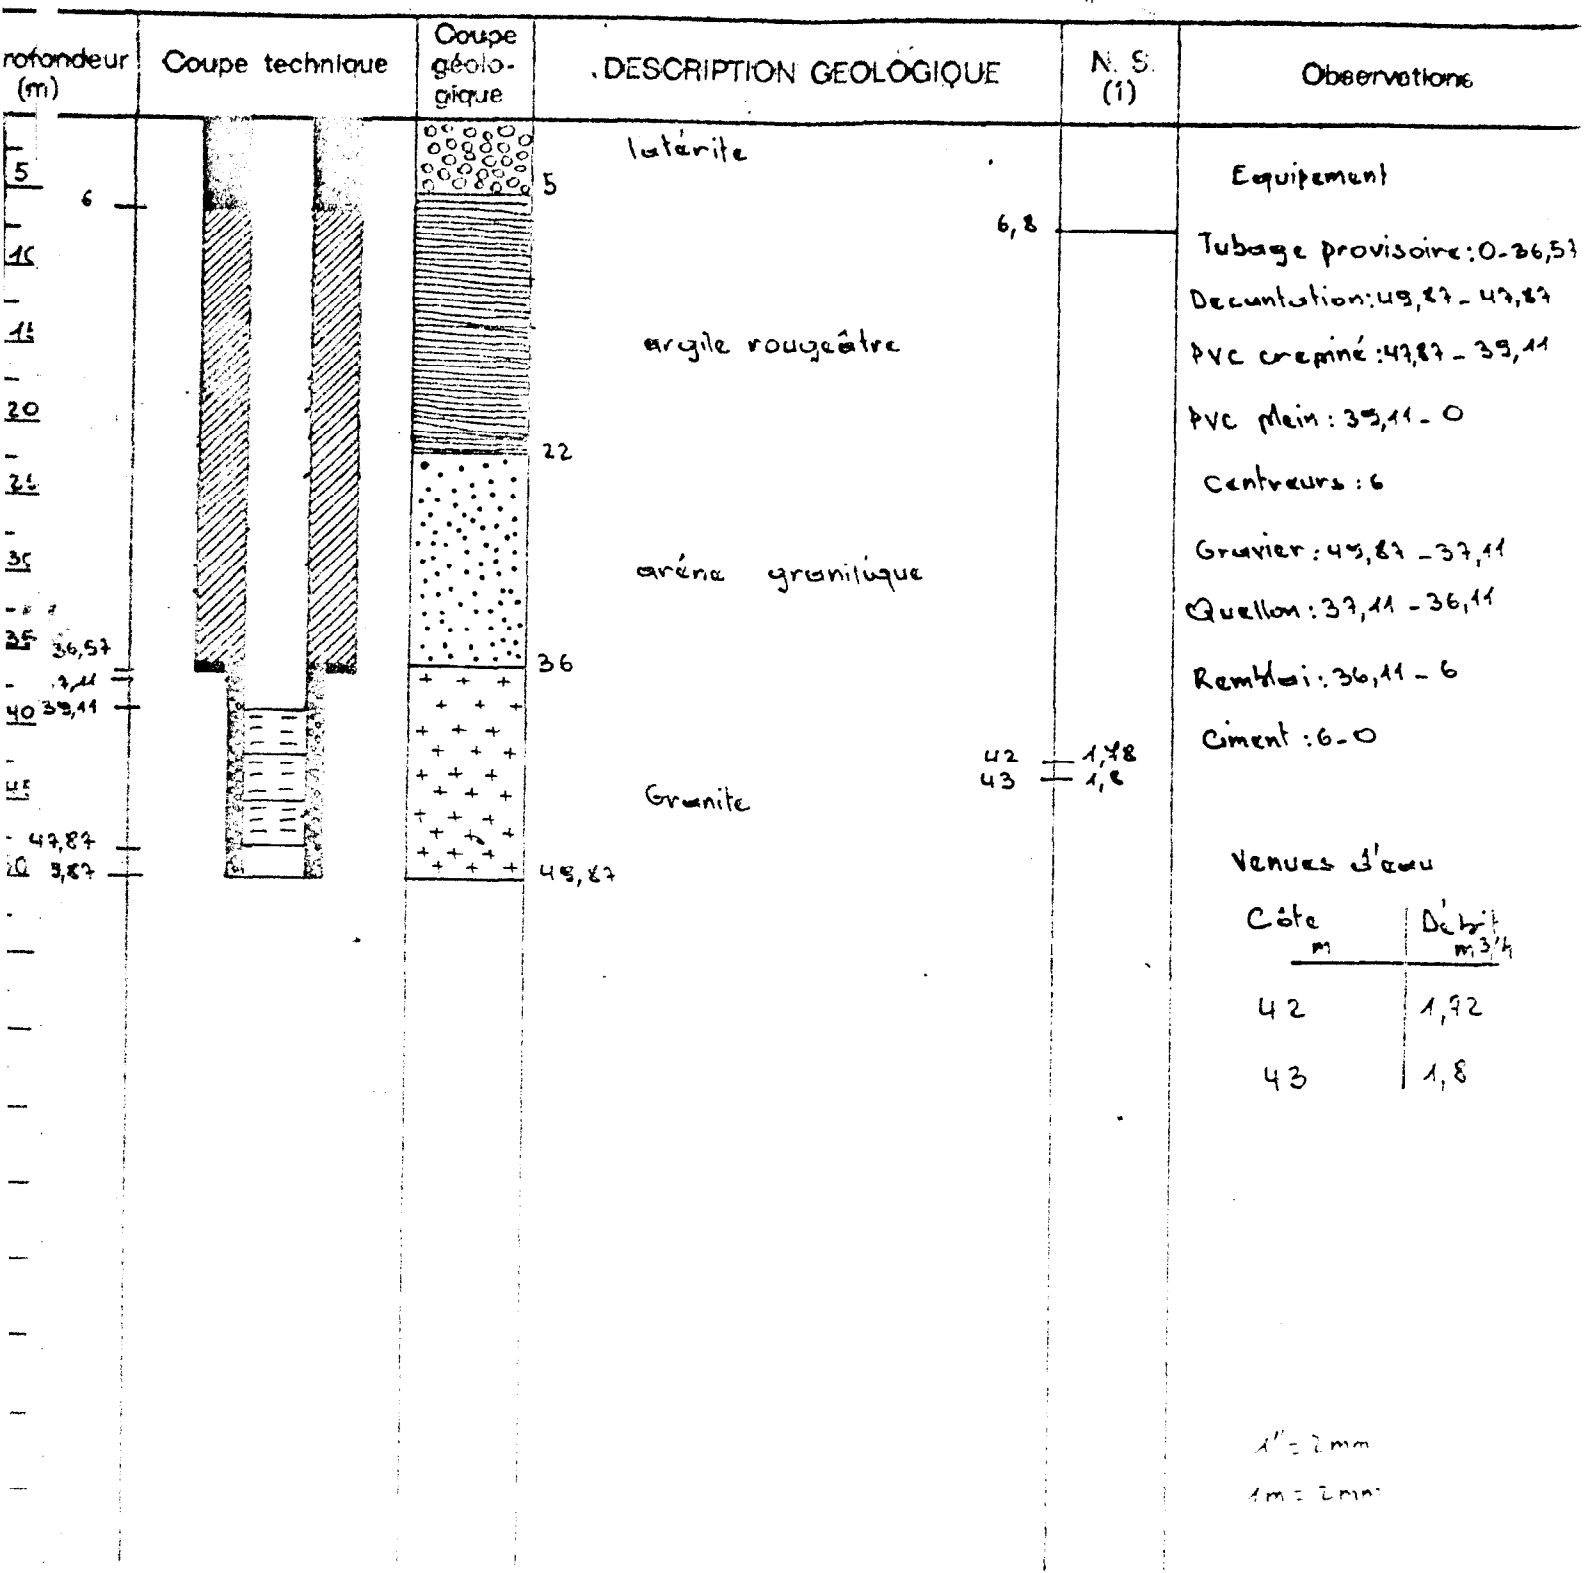 rofondeur
(m)
Coupe technique
Coupe
géolo-
gique
DESCRIPTION GEOLOGIQUE
N. S.
(1)
Observations
5
6
10
15
20
25
30
35
36,57
7,11
40 39,11
45
47,87
9,87
5
22
36
49,87
latérite
argile rougeâtre
aréne granitique
Granite
6,8
42
43 1,8
Equipement
Tubage provisoire : 0-36,57
Decantation : 49,87 - 47,87
PVC crepiné : 47,87 - 39,11
PVC plein : 39,11 - 0
Centreurs : 6
Gravier : 49,87 - 37,11
Quellon : 37,11 - 36,11
Remblai : 36,11 - 6
Ciment : 6-0
Venues d'eau
Côte Débit
m m3/h
42
43 1,8
1" = 2mm
1m = 2mm